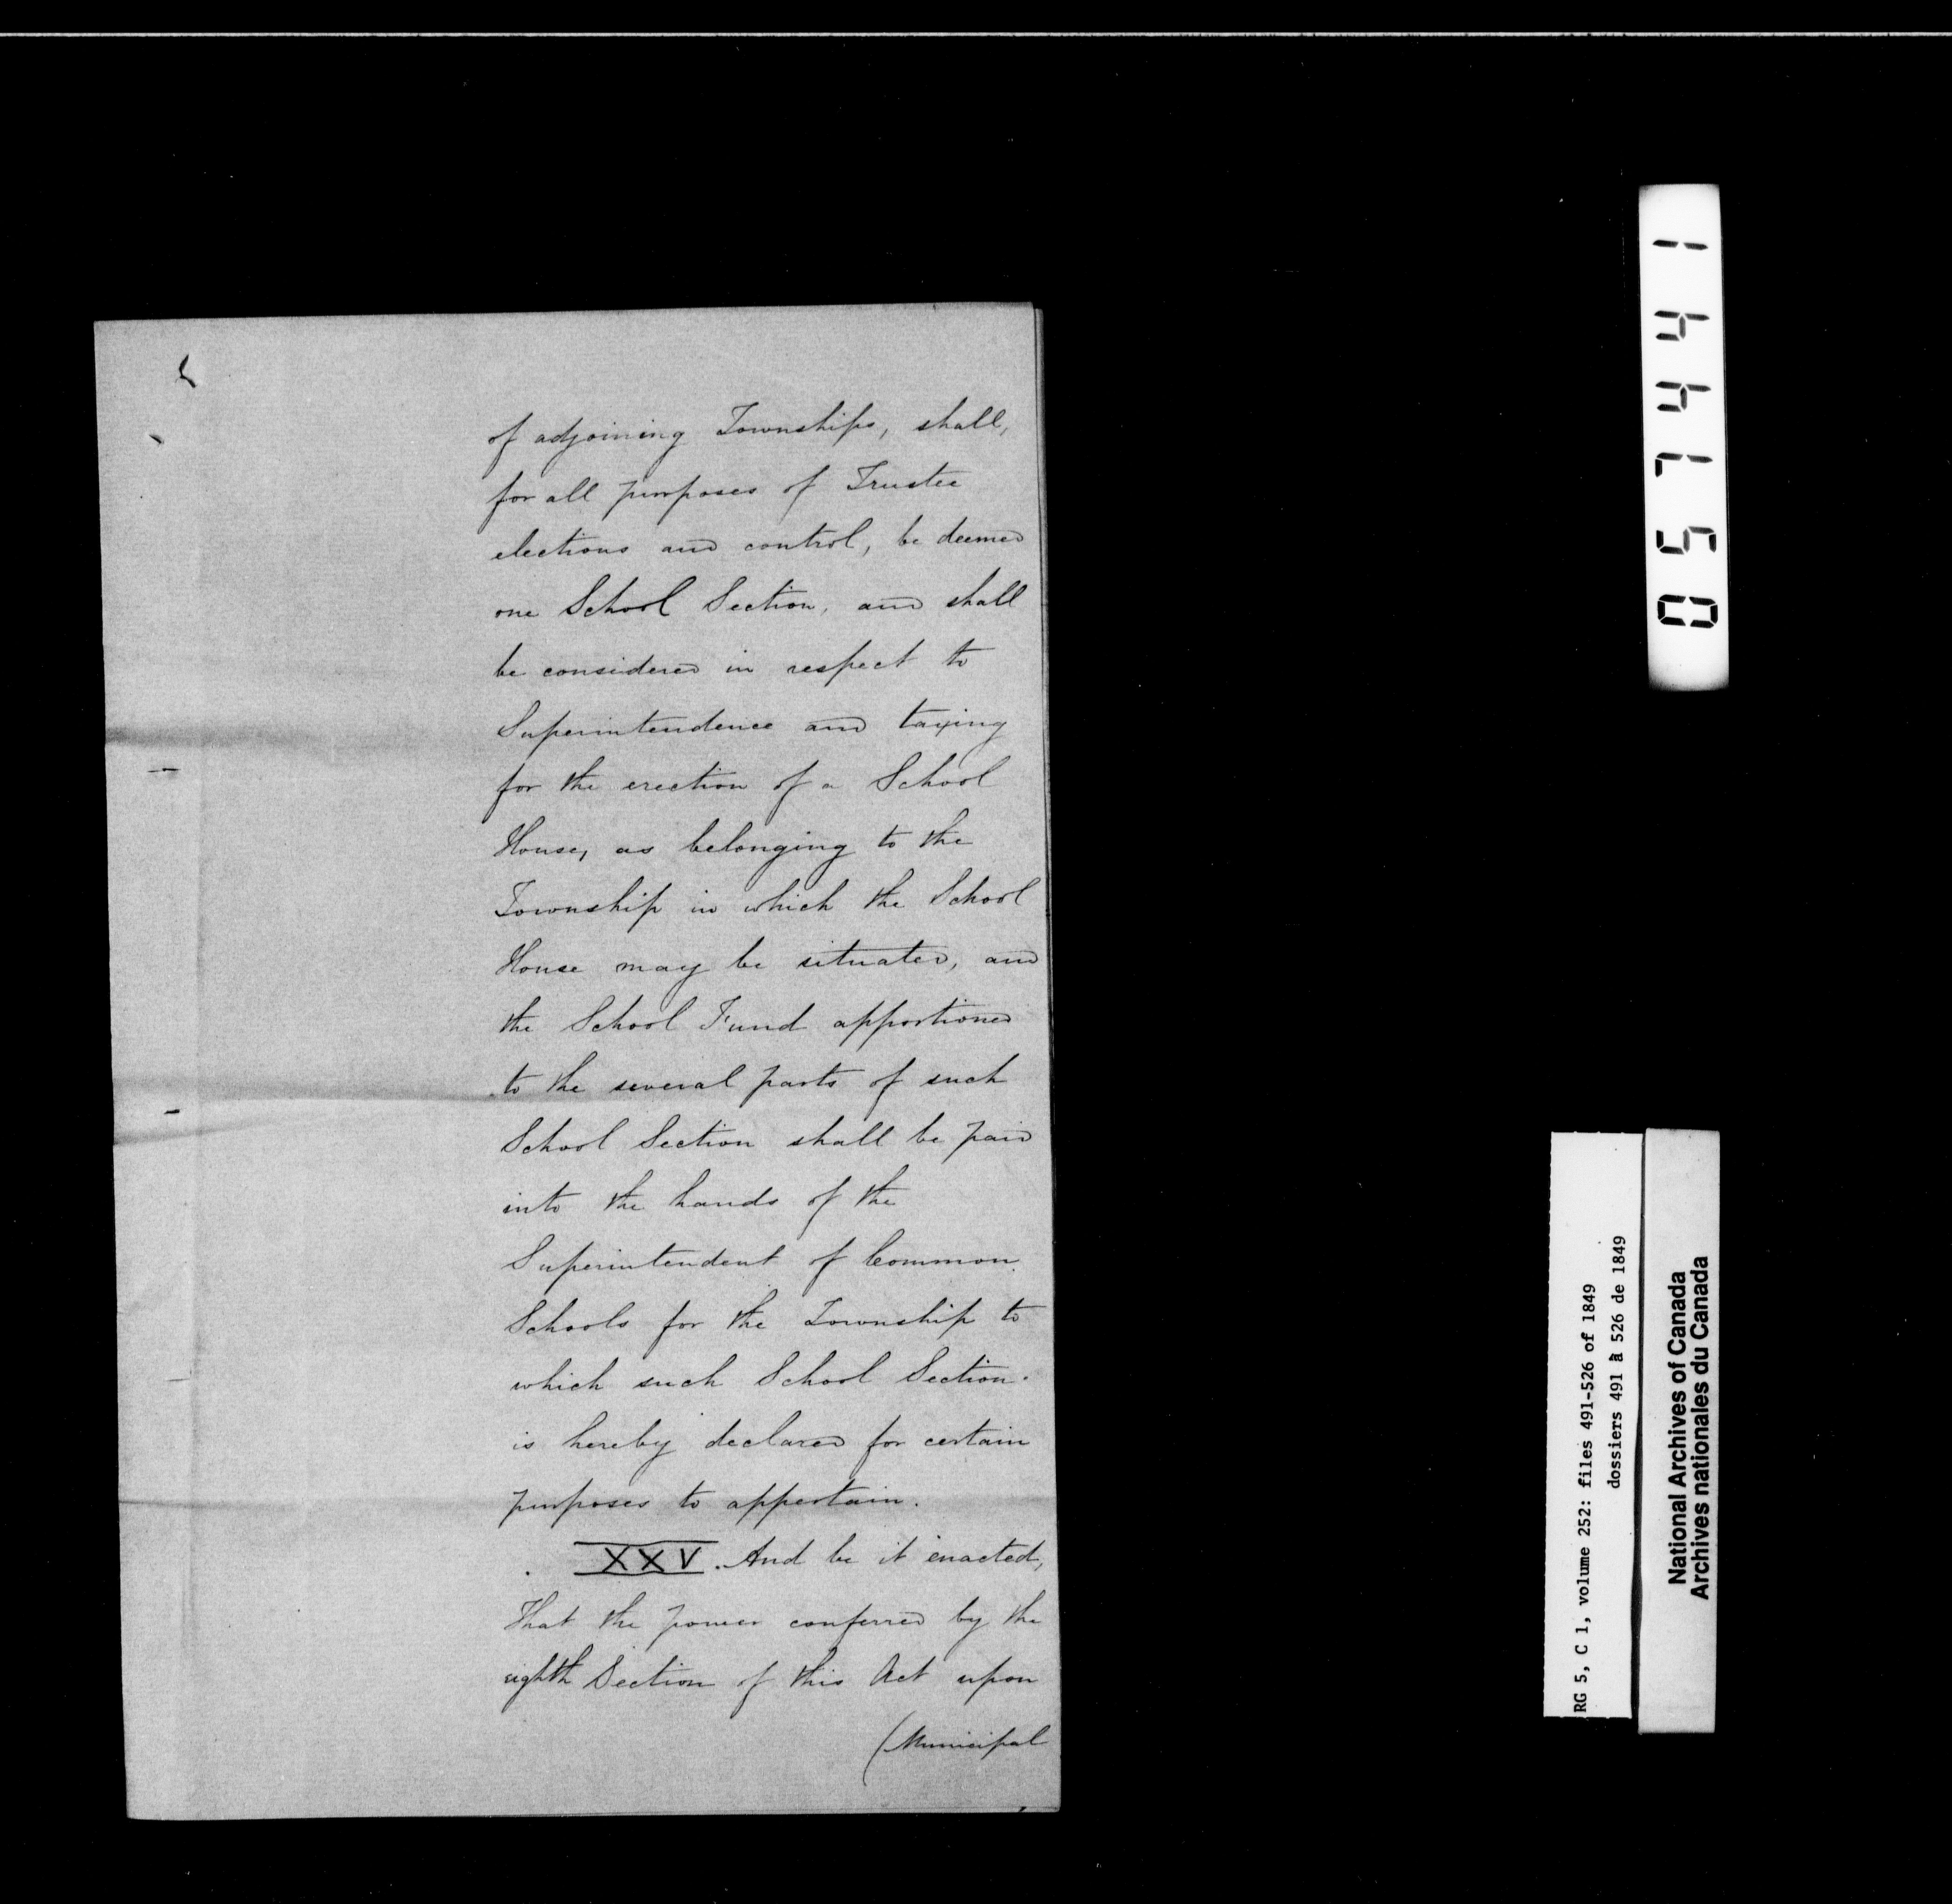 of adjoining Townships, shall,
for all purposes of Trustee
elections and control, be deemed
one School Section, and shall
be considered in respect to
Superintendence and taxing
for the erection of a School
House, as belonging to the
Township in which the School
House may be situated, and
the School Fund apportioned
to the several parts of such
School Section shall be paid
into the hands of the
Superintendent of Common
Schools for the Township to
which such School Section
is hereby declared for certain
purposes to appertain.
XXV. And be it enacted,
That the power conferred by the
eighth Section of this Act upon
(Municipal
051441
RG 5, C 1, volume 252: files 491-526 of 1849
dossiers 491 à 526 de 1849
National Archives of Canada
Archives nationales du Canada